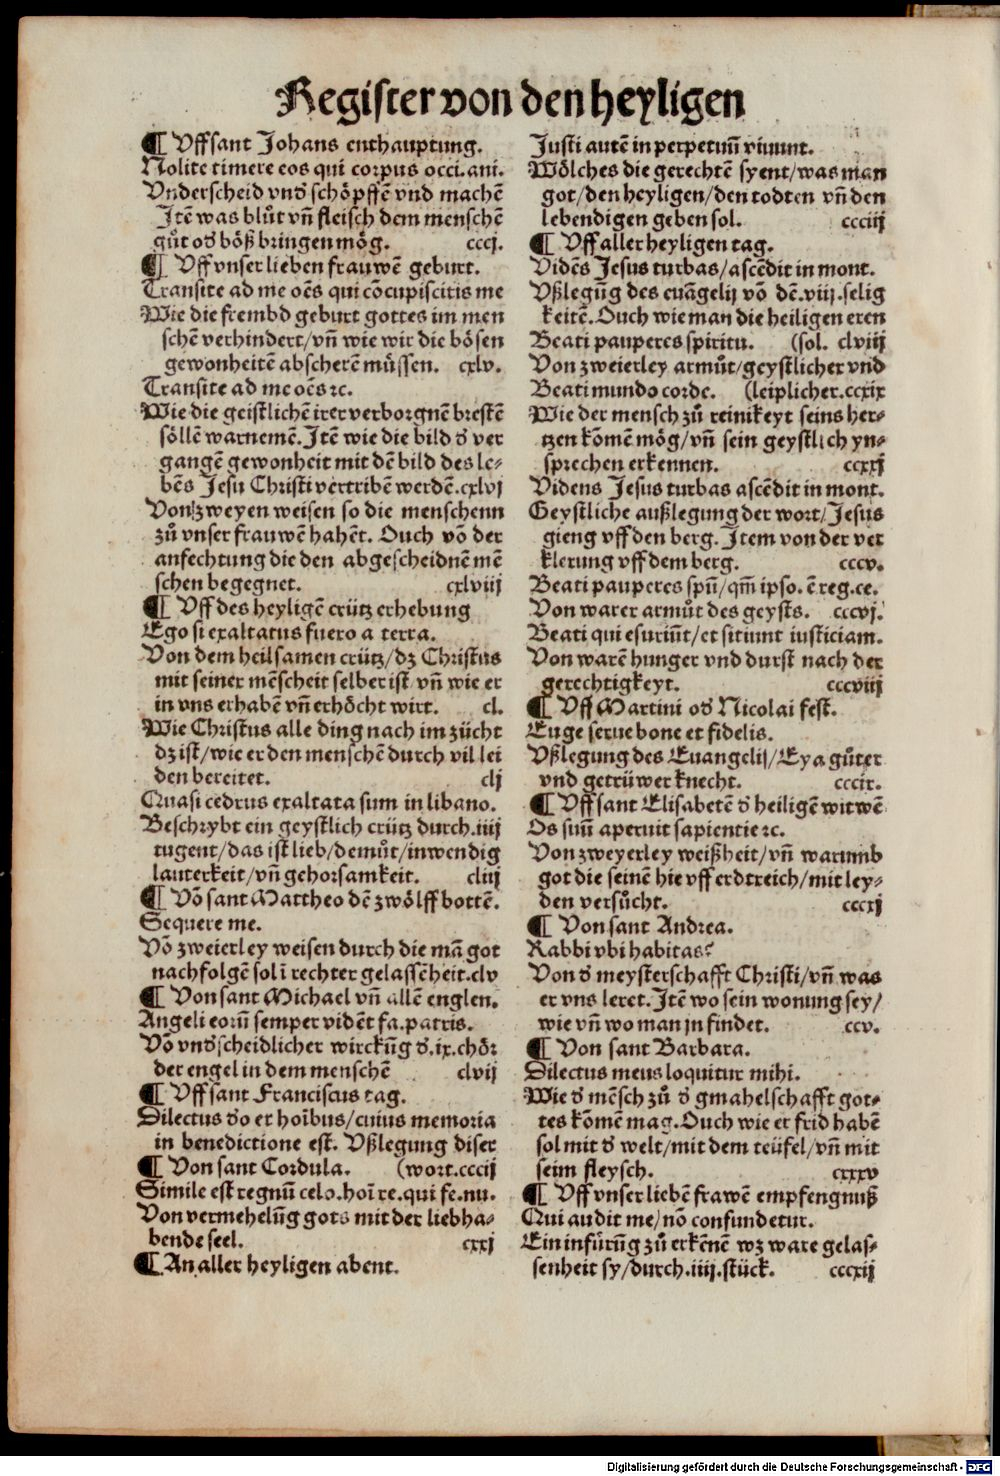 Register von den heyligen
¶ Vff sant Johans enthauptung.
Nolite timere eos qui corpus occi. ani.
Vnderscheid vnd̕ schöpffē vnd machē
Jtē was blůt vñ fleisch dem menschē
gůt od̕ böß bringen mög. cccj.
¶ Vff vnser lieben frauwē geburt.
Transite ad me oēs qui cōcupiscitis me
Wie die frembd geburt gottes im men
schē verhindert/vñ wie wir die bösen
gewonheitē abscherē müssen. cxlv.
Transite ad me oēs ⁊c.
Wie die geistlichē irer verborgnē brestē
söllē warnemē. Jtē wie die bild d̕ ver
gangē gewonheit mit dē bild des le⸗
bēs Jesu Christi vertribē werdē. cxlvj
Von zweyen weisen so die menschenn
zů vnser frauwē habēt. Ouch vō der
anfechtung die den abgescheidnē mē
schen begegnet. cxlviij
¶ Vff des heyligē crütz erhebung
Ego si exaltatus fuero a terra.
Von dem heilsamen crütz/dz Christus
mit seiner mēscheit selber ist vñ wie er
in vns erhabē vñ erhöcht wirt. cl.
Wie Christus alle ding nach im zücht
dz ist/wie er den menschē durch vil lei
den bereitet. clj
Quasi cedrus exaltata sum in libano.
Beschrybt ein geystlich crütz durch .iiij
tugent/das ist lieb/demůt/inwendig
lauterkeit/vñ gehorsamkeit. cliij
¶ Vō sant Mattheo dē zwölff botten.
Sequere me.
Vō zweierley weisen durch die mā got
nachfolgē sol ī rechter gelassēheit. clv
¶ Von sant Michael vñ allē englen.
Angeli eorū semper vidēt fa. patris.
Vō vnd̕scheidlicher wirckūg d̕ .ix. chör
der engel in dem menschē clvij
¶ Vff sant Franciscus tag.
Dilectus d̕o et hoībus/cuius memoria
in benedictione est. Vßlegung diser
¶ Von sant Cordula. (wort. cccij
Simile est regnū celo. hoī re. qui fe. nu.
Von vermehelūg gots mit der liebha⸗
bende seel. cxxj
¶ An aller heyligen abent.
Justi autē in perpetuū viuunt.
Wölches die gerechtē syent/was man
got/den heyligen/den todten vñ den
lebendigen geben sol. ccciij
¶ Vff aller heyligen tag.
Vidēs Jesus turbas/ascēdit in mont.
Vßlegūg des euāgelij vō dē .viij. selig
keitē. Ouch wie man die heiligen eren
Beati pauperes spiritu. (sol. clviij
Von zweierley armůt/geystlicher vnd
Beati mundo corde. (leiplicher. ccxix
Wie der mensch zů reinikeyt seins her⸗
tzen kōmē mög/vñ sein geystlich yn⸗
sprechen erkennen. ccxxj
Videns Jesus turbas ascēdit in mont.
Geystliche außlegung der wort/Jesus
gieng vff den berg. Jtem von der ver
klerung vff dem berg. cccv.
Beati pauperes spū/qm̄ ipso. ē reg. ce.
Von warer armůt des geysts. cccvj.
Beati qui esuriūt/et sitiunt iusticiam.
Von warē hunger vnd durst nach der
gerechtigkeyt. cccviij
¶ Vff Martini od̕ Nicolai fest.
Euge serue bone et fidelis.
Vßlegung des Euangelij/Ey a gůter
vnd getrüwer knecht. cccix.
¶ Vff sant Elisabetē d̕ heiligē witwē
Os suū aperuit sapientie ⁊c.
Von zweyerley weißheit/vñ warumb
got die seinē hie vff erdtreich/mit ley⸗
den versůcht. cccxj
¶ Von sant Andrea.
Rabbi vbi habitas?
Von d̕ meysterschafft Christi/vñ was
er vns leret. Jtē wo sein wonung sey/
wie vñ wo man jn findet. ccv.
¶ Von sant Barbara.
Dilectus meus loquitur mihi.
Wie d̕ mēsch zů d̕ gmahelschafft got⸗
tes kōmē mag. Ouch wie er frid habē
sol mit d̕ welt/mit dem teüfel/vñ mit
seim fleysch. cxxxv
¶ Vff vnser liebē frawē empfengnuß
Qui audit me/nō confundetur.
Ein infürūg zů erkēnē wz ware gelas⸗
senheit sy/durch .iiij. stück. cccxij
Digitalisierung gefördert durch die Deutsche Forschungsgemeinschaft - DFG